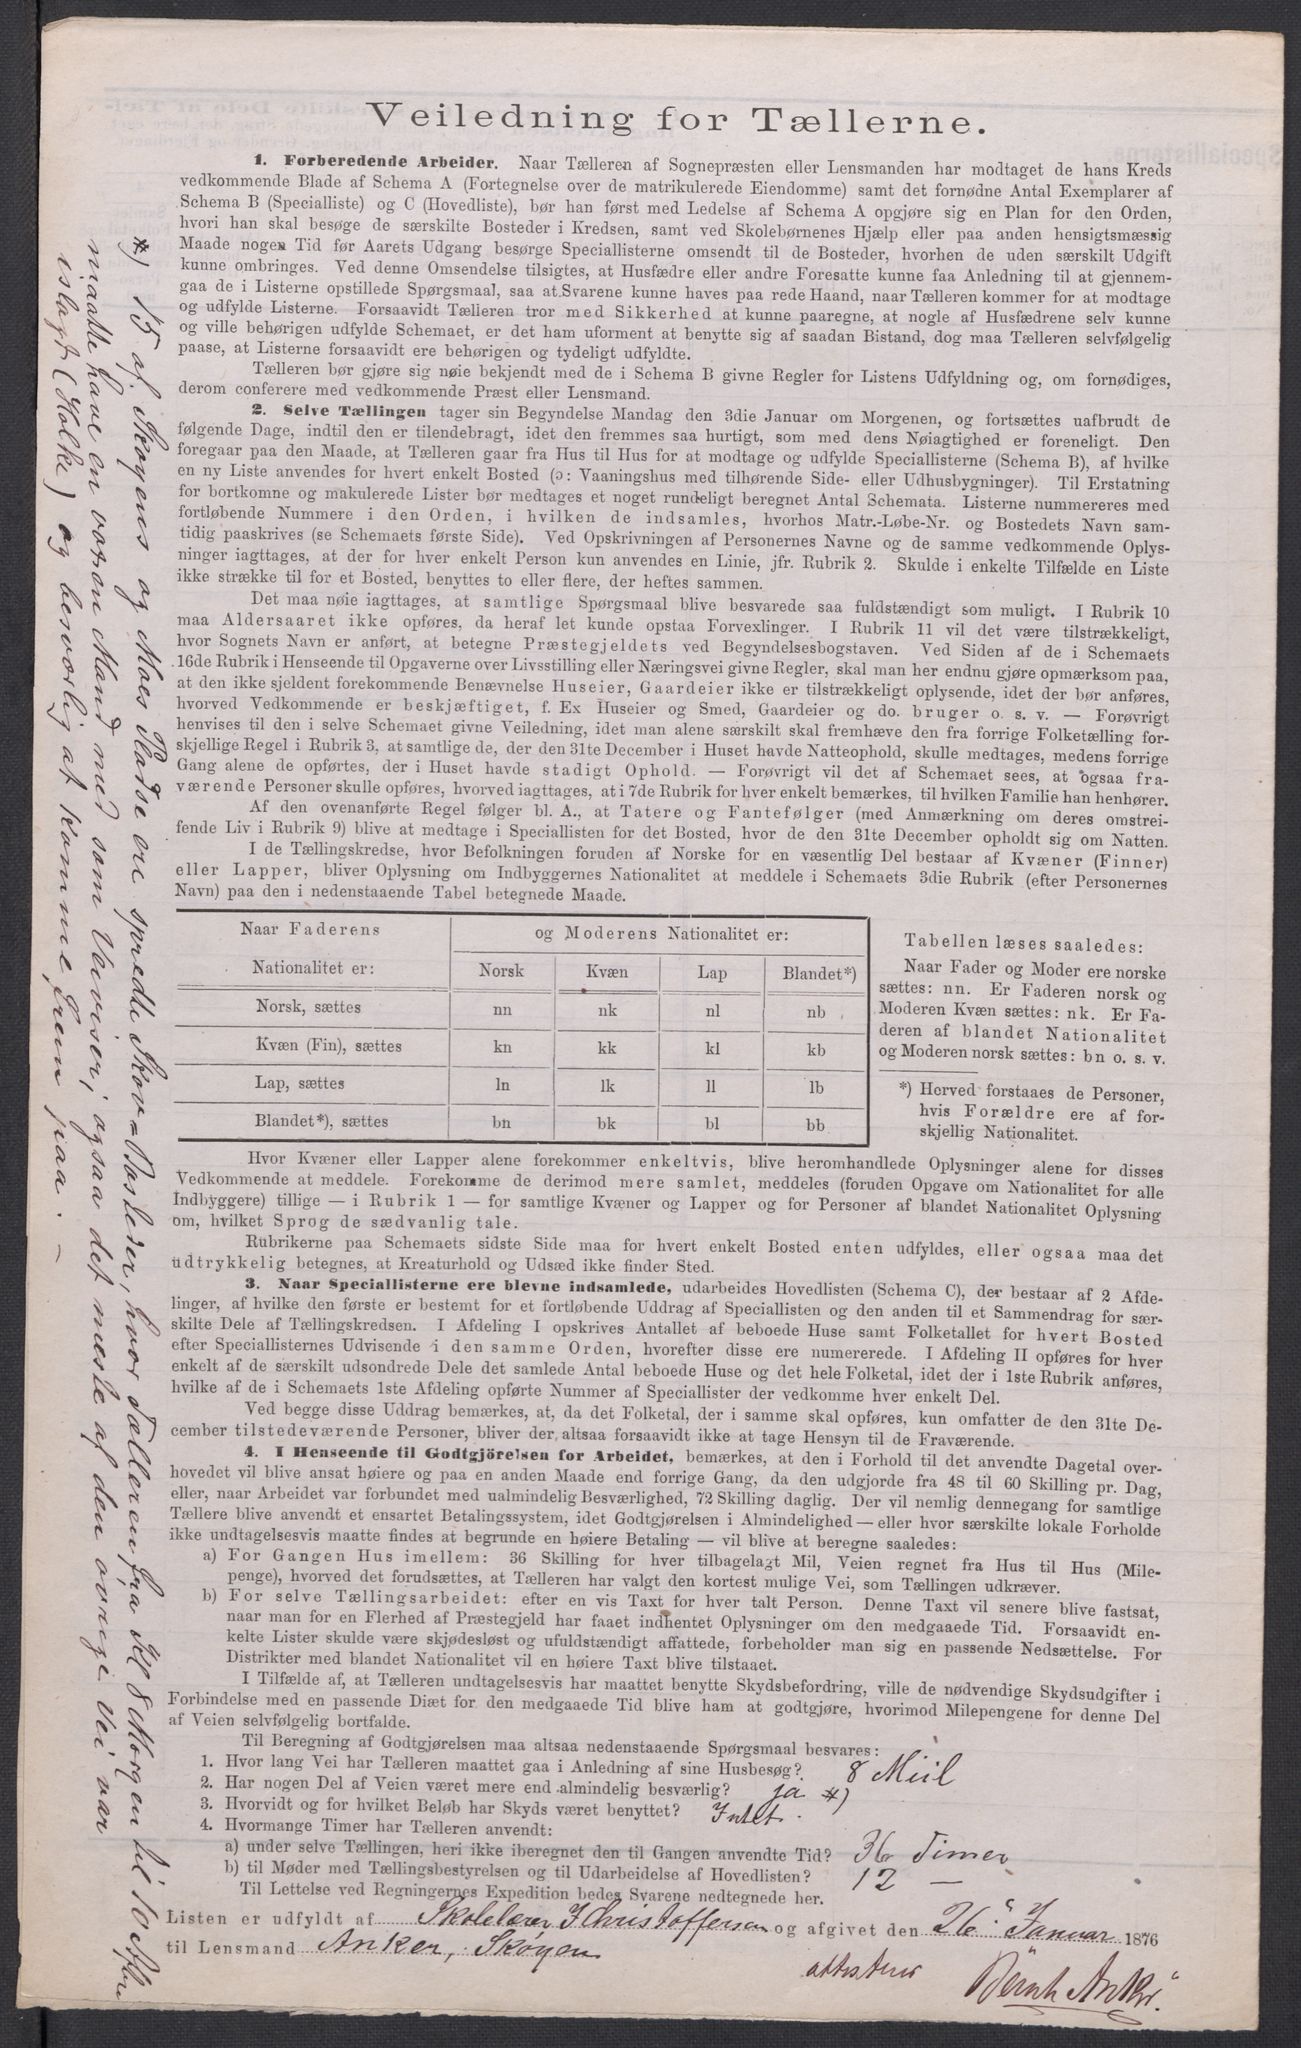 Veiledning for Tællerne.
1. Forberedende Arbeider. Naar Tælleren af Sognepræsten eller Lensmanden har modtaget de hans Kreds
vedkommende Blade af Schema A (Fortegnelse over de matrikulerede Eiendomme) samt det fornødne Antal Exemplarer af
Schema B (Specialliste) og C (Hovedliste), bør han først med Ledelse af Schema A opgjøre sig en Plan for den Orden,
hvori han skal besøge de særskilte Bosteder i Kredsen, samt ved Skolebørnenes Hjælp eller paa anden hensigtsmæssig
Maade nogen Tid før Aarets Udgang besørge Speciallisterne omsendt til de Bosteder, hvorhen de uden særskilt Udgift
kunne ombringes. Ved denne Omsendelse tilsigtes, at Husfædre eller andre Foresatte kunne faa Anledning til at gjennem-
gaa de i Listerne opstillede Spørgsmaal, saa at Svarene kunne haves paa rede Haand, naar Tælleren kommer for at modtage
og udfylde Listerne. Forsaavidt Tælleren tror med Sikkerhed at kunne paaregne, at nogle af Husfædrene selv kunne
og ville behørigen udfylde Schemaet, er det ham uforment at benytte sig af saadan Bistand, dog maa Tælleren selvfølgelig
paase, at Listerne forsaavidt ere behørigen og tydeligt udfyldte.
Tælleren bør gjøre sig nøie bekjendt med de i Schema B givne Regler for Listens Udfyldning og, om fornødiges,
derom conferere med vedkommende Præst eller Lensmand.
2. Selve Tællingen tager sin Begyndelse Mandag den 3die Januar om Morgenen, og fortsættes uafbrudt de
følgende Dage, indtil den er tilendebragt, idet den fremmes saa hurtigt, som med dens Nøiagtighed er foreneligt. Den
foregaar paa den Maade, at Tælleren gaar fra Hus til Hus for at modtage og udfylde Speciallisterne (Schema B), af hvilke
en ny Liste anvendes for hvert enkelt Bosted (ɔ: Vaaningshus med tilhørende Side- eller Udhusbygninger). Til Erstatning
for bortkomne og makulerede Lister bør medtages et noget rundeligt beregnet Antal Schemata. Listerne nummereres med
fortløbende Nummere i den Orden, i hvilken de indsamles, hvorhos Matr.-Løbe-Nr. og Bostedets Navn sam-
tidig paaskrives (se Schemaets første Side). Ved Opskrivningen af Personernes Navne og de samme vedkommende Oplys-
ninger iagttages, at der for hver enkelt Person kun anvendes en Linie, jfr. Rubrik 2. Skulde i enkelte Tilfælde en Liste
ikke strække til for et Bosted, benyttes to eller flere, der heftes sammen.
Det maa nøie iagttages, at samtlige Spørgsmaal blive besvarede saa fuldstændigt som muligt. I Rubrik 10
maa Aldersaaret ikke opføres, da heraf let kunde opstaa Forvexlinger. I Rubrik 11 vil det være tilstrækkeligt,
hvor Sognets Navn er anført, at betegne Præstegjeldets ved Begyndelsesbogstaven. Ved Siden af de i Schemaets
16de Rubrik i Henseende til Opgaverne over Livsstilling eller Næringsvei givne Regler, skal man her endnu gjøre opmærksom paa,
at den ikke sjeldent forekommende Benævnelse Huseier, Gaardeier ikke er tilstrækkeligt oplysende, idet der bør anføres,
hvorved Vedkommende er beskjæftiget, f. Ex Huseier og Smed, Gaardeier og do. bruger o. s. v. — Forøvrigt
henvises til den i selve Schemaet givne Veiledning, idet man alene særskilt skal fremhæve den fra forrige Folketælling for-
skjellige Regel i Rubrik 3, at samtlige de, der den 31te December i Huset havde Natteophold, skulle medtages, medens forrige
Gang alene de opførtes, der i Huset havde stadigt Ophold. — Forøvrigt vil det af Schemaet sees, at ogsaa fra-
værende Personer skulle opføres, hvorved iagttages, at i 7de Rubrik for hver enkelt bemærkes, til hvilken Familie han henhører.
Af den ovenanførte Regel følger bl. A., at Tatere og Fantefølger (med Anmærkning om deres omstrei-
fende Liv i Rubrik 9) blive at medtage i Speciallisten for det Bosted, hvor de den 31te December opholdt sig om Natten.
I de Tællingskredse, hvor Befolkningen foruden af Norske for en væsentlig Del bestaar af Kvæner (Finner)
eller Lapper, bliver Oplysning om Indbyggernes Nationalitet at meddele i Schemaets 3die Rubrik (efter Personernes
Navn) paa den i nedenstaaende Tabel betegnede Maade.
Naar Faderens og Moderens Nationalitet er:
Nationalitet er: Norsk Kvæn Lap Blandet*)
Norsk, sættes nn nk nl nb
Kvæn (Fin), sættes kn kk kl kb
Lap, sættes ln lk ll lb
Blandet*), sættes bn bk bl bb
Tabellen læses saaledes:
Naar Fader og Moder ere norske
sættes: nn. Er Faderen norsk og
Moderen Kvæn sættes: nk. Er Fa-
deren af blandet Nationalitet
og Moderen norsk sættes: bn o. s. v.
*) Herved forstaaes de Personer,
hvis Forældre ere af for-
skjellig Nationalitet.
Hvor Kvæner eller Lapper alene forekommer enkeltvis, blive heromhandlede Oplysninger alene for disses
Vedkommende at meddele. Forekomme de derimod mere samlet, meddeles (foruden Opgave om Nationalitet for alle
Indbyggere) tillige — i Rubrik 1 — for samtlige Kvæner og Lapper og for Personer af blandet Nationalitet Oplysning
om, hvilket Sprog de sædvanlig tale.
Rubrikerne paa Schemaets sidste Side maa for hvert enkelt Bosted enten udfyldes, eller ogsaa maa det
udtrykkelig betegnes, at Kreaturhold og Udsæd ikke finder Sted.
3. Naar Speciallisterne ere blevne indsamlede, udarbeides Hovedlisten (Schema C), der bestaar af 2 Afde-
linger, af hvilke den første er bestemt for et fortløbende Uddrag af Speciallisten og den anden til et Sammendrag for sær-
skilte Dele af Tællingskredsen. I Afdeling I opskrives Antallet af beboede Huse samt Folketallet for hvert Bosted
efter Speciallisternes Udvisende i den samme Orden, hvorefter disse ere numererede. I Afdeling II opføres for hver
enkelt af de særskilt udsondrede Dele det samlede Antal beboede Huse og det hele Folketal, idet der i 1ste Rubrik anføres,
hvilke af de i Schemaets 1ste Afdeling opførte Nummer af Speciallister der vedkomme hver enkelt Del.
Ved begge disse Uddrag bemærkes, at, da det Folketal, der i samme skal opføres, kun omfatter de den 31te De-
cember tilstedeværende Personer, bliver der altsaa forsaavidt ikke at tage Hensyn til de Fraværende.
4. I Henseende til Godtgjörelsen for Arbeidet, bemærkes, at den i Forhold til det anvendte Dagetal over-
hovedet vil blive ansat høiere og paa en anden Maade end forrige Gang, da den udgjorde fra 48 til 60 Skilling pr. Dag,
eller, naar Arbeidet var forbundet med ualmindelig Besværlighed, 72 Skilling daglig. Der vil nemlig dennegang for samtlige
Tællere blive anvendt et ensartet Betalingssystem, idet Godtgjørelsen i Almindelighed — eller hvor særskilte lokale Forholde
ikke undtagelsesvis maatte findes at begrunde en høiere Betaling — vil blive at beregne saaledes:
a) For Gangen Hus imellem: 36 Skilling for hver tilbagelagt Mil, Veien regnet fra Hus til Hus (Mile-
penge), hvorved det forudsættes, at Tælleren har valgt den kortest mulige Vei, som Tællingen udkræver.
b) For selve Tællingsarbeidet: efter en vis Taxt for hver talt Person. Denne Taxt vil senere blive fastsat,
naar man for en Flerhed af Præstegjeld har faaet indhentet Oplysninger om den medgaaede Tid. Forsaavidt en-
kelte Lister skulde være skjødesløst og ufuldstændigt affattede, forbeholder man sig en passende Nedsættelse. For
Distrikter med blandet Nationalitet vil en høiere Taxt blive tilstaaet.
I Tilfælde af, at Tælleren undtagelsesvis har maattet benytte Skydsbefordring, ville de nødvendige Skydsudgifter i
Forbindelse med en passende Diæt for den medgaaede Tid blive ham at godtgjøre, hvorimod Milepengene for denne Del
af Veien selvfølgelig bortfalde.
Til Beregning af Godtgjørelsen maa altsaa nedenstaaende Spørgsmaal besvares:
1. Hvor lang Vei har Tælleren maattet gaa i Anledning af sine Husbesøg? 8 Miil
2. Har nogen Del af Veien været mere end almindelig besværlig? ja *)
3. Hvorvidt og for hvilket Beløb har Skyds været benyttet? Intet.
4. Hvormange Timer har Tælleren anvendt:
a) under selve Tællingen, heri ikke iberegnet den til Gangen anvendte Tid? 36 Timer
b) til Møder med Tællingsbestyrelsen og til Udarbeidelse af Hovedlisten? 12 —
Til Lettelse ved Regningernes Expedition bedes Svarene nedtegnede her.
Listen er udfyldt af Skolelærer J Christoffersen og afgivet den 26. Januar 1876
til Lensmand Anker, Skøyen
attesteres
Bernh Anker.
*) 15 af Skøyens og Moes Pladse ere spredte Skov=Pladser, hvor Tælleren fra Kl 8 Morgen til 10 Aften
maatte have en voxen Mand med som Veviser, ogsaa det meste af den øvrige Vei var
islagt (Holke) og besværlig at komme frem paa. —